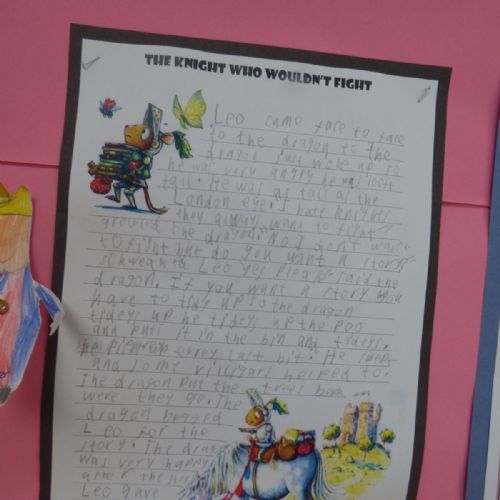 THE KNIGHT WHO WOULDN'T FIGHT
Leo came face to face
to the dragon to the
dragon just woke up so
he was very angry he was
tall. He was as tall as the
London eye. I hate knights
they always want to fight
growled the dragon. No I don't want
to fight but do you want a story
Leo yes please said the
dragon. If you want a story you
have to tidy up so the dragon
tideys up he tideys up the poo
and puts it in the bin and tideys
up every last bit. He
and some helped to.
The dragon put the trees back
were they go. The
dragon begged
Leo for the
story. The dragon
was very happy
after the
Leo gave